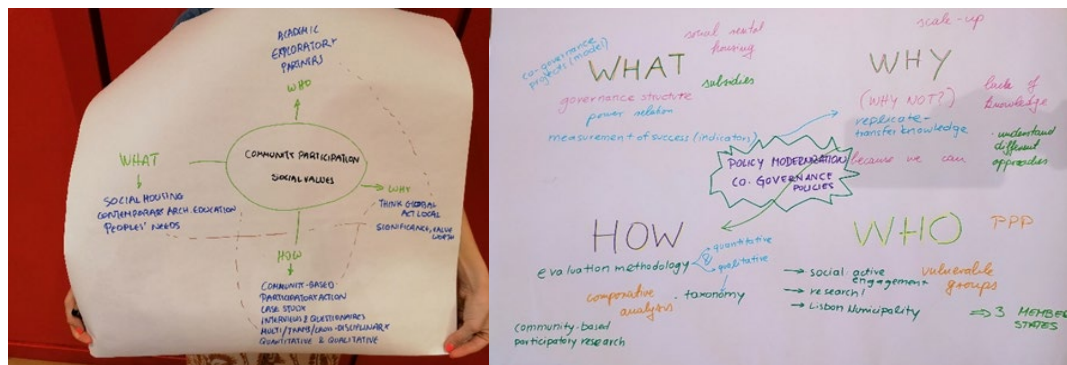 ACADEMIC
EXPLORATORY
PARTNERS
WHO
COMMUNITY PARTICIPATION
SOCIAL VALUES
WHAT
SOCIAL HOUSING
CONTEMPORARY ARCH. EDUCATION
PEOPLES' NEEDS
WHY
THINK GLOBAL
ACT LOCAL
SIGNIFICANCE, VALUE
WORTH
HOW
COMMUNITY-BASED-
PARTICIPATORY ACTION
CASE STUDY
INTERVIEWS & QUESTIONNAIRES
MULTI/TRANS/CROSS-DISCIPLINARY
QUANTITATIVE & QUALITATIVE
co-governance
projects (model)
WHAT
social mental
housing
subsidies
governance structure
power relation
measurement of success (indicators)
scale-up
WHY
(WHY NOT?)
lack of
knowledge
replicate-
transfer knowledge
because we can
• understand
different
approaches
POLICY MODERNIZATION
CO-GOVERNANCE
POLICIES
HOW
evaluation methodology
quantitative
&
qualitative
comparative
analysis
• taxonomy
community-based
participatory research
WHO
PPP
→ social active
engagement
→ research!
→ Lisbon Municipality
vulnerable
groups
⇒ 3 MEMBER
STATES